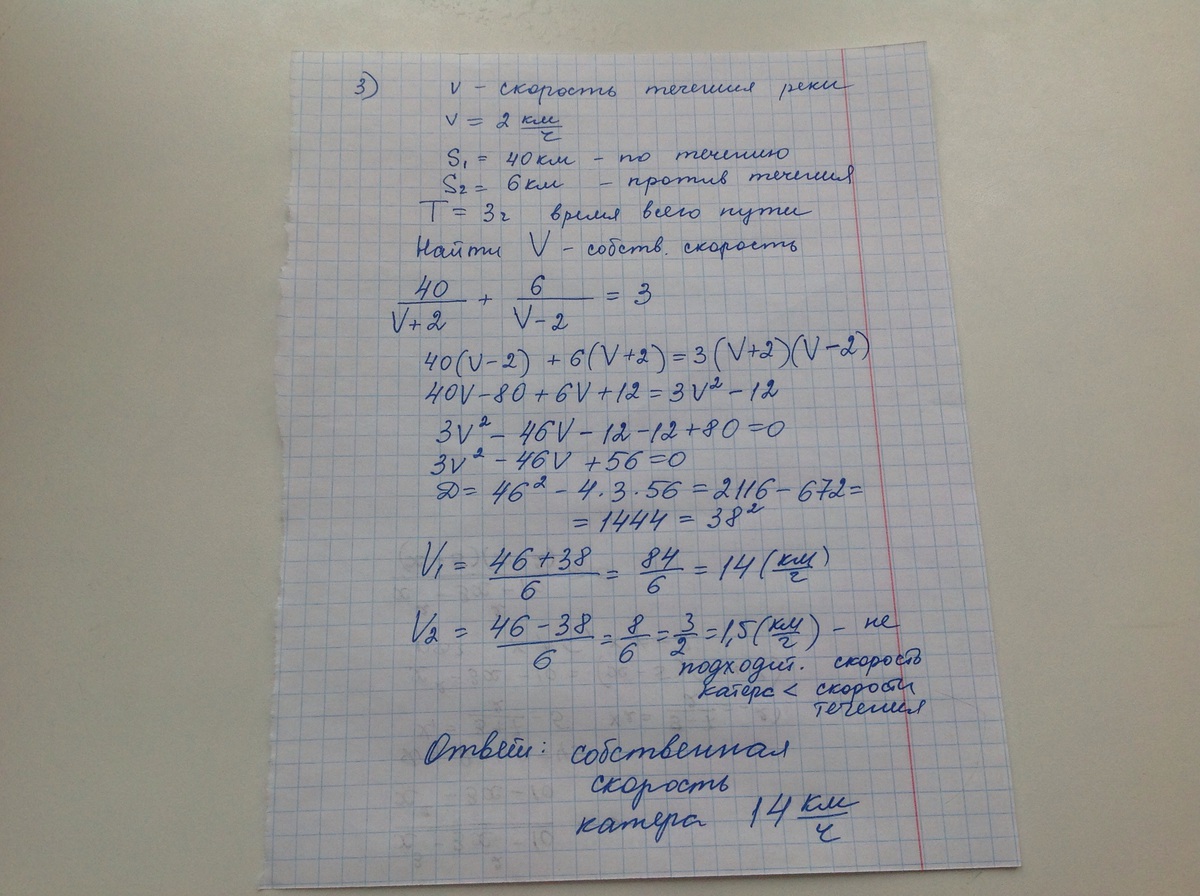 3) v - скорость течения реки
v = 2 км/ч
S₁ = 40км - по течению
S₂ = 6км - против течения
T = 3ч время всего пути
Найти V - собств. скорость
40/(V+2) + 6/(V-2) = 3
40(V-2) + 6(V+2) = 3(V+2)(V-2)
40V-80+6V+12=3V²-12
3V² - 46V - 12 - 12 + 80 = 0
3V² - 46V + 56 = 0
D = 46² - 4·3·56 = 2116 - 672 =
= 1444 = 38²
V₁ = (46+38)/6 = 84/6 = 14 (км/ч)
V₂ = (46-38)/6 = 8/6 = 3/2 = 1,5 (км/ч) - не
подходит. скорость
катера < скорости
течения
Ответ: собственная
скорость
катера 14 км/ч